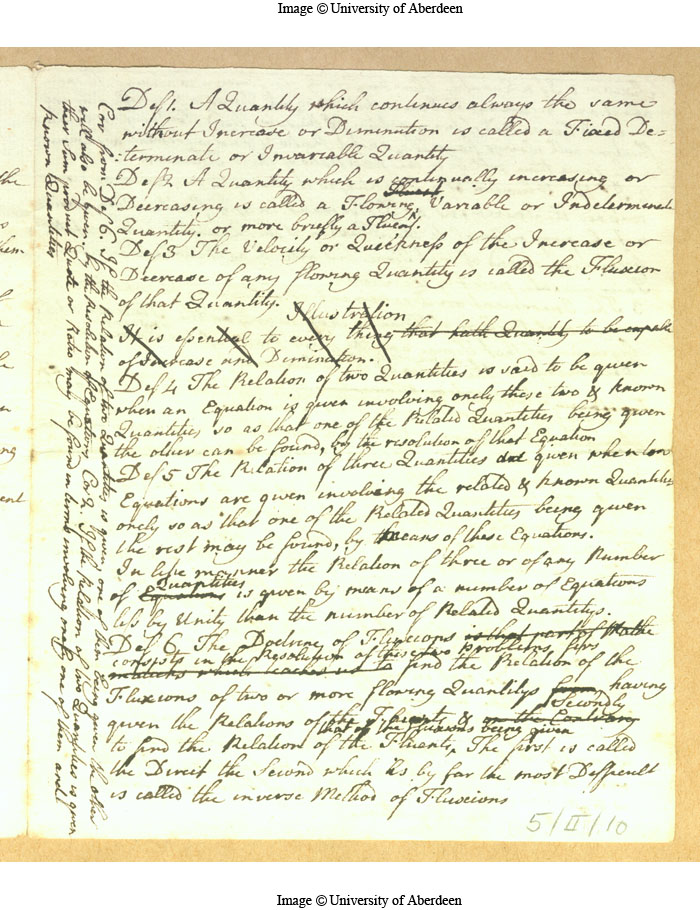 Image © University of Aberdeen
Def 1. A Quantity which continues always the same
without Increase or Diminution is called a Fixed De=
:terminate or Invariable Quantity
Def 2 A Quantity which is continually increasing or
Fluent
Decreasing is called a Flowing Variable or Indeterminate
Quantity. or more briefly a Fluent.
Def 3 The Velocity or Quickness of the Increase or
Decrease of any flowing Quantity is called the Fluxion
of that Quantity.
Illustration
It is essential to every thing that hath Quantity to be capable
of Increase and Diminution.
Def 4 The Relation of two Quantities is said to be given
when an Equation is given involving onely these two & known
Quantities so as that one of the Related Quantities being given
the other can be found, by the resolution of that Equation
Def 5 The Relation of three Quantities given when two
Equations are given involving the related & known Quantities
onely so as that one of the Related Quantities being given
the rest may be found, by means of these Equations.
In like manner the Relation of three or of any Number
Quantities
of Equations is given by means of a number of Equations
less by Unity than the number of Related Quantitys.
Def 6 The Doctrine of Fluxions is that part of Mathe
consists in the Resolution of these two problems firs
maticks which teaches us to find the Relation of the
Fluxions of two or more flowing Quantitys from having
Secondly
given the Relations of the Fluents & on the Contrary
that of the Fluxions being given
to find the Relation of the Fluents, The first is called
the Direct the Second which is by far the most Difficult
is called the inverse Method of Fluxions
5/II/10
Cor from Def 6. If the Relation of two Quantities is given, one of them being given the other
will also be given. by the Resolution of Equations Cor 2 If the Relation of two Quantities is given
their Sum product Quote or Ratio may be found in terms involving onely one of them and
known Quantities
the
hem
ng
ent
Image © University of Aberdeen